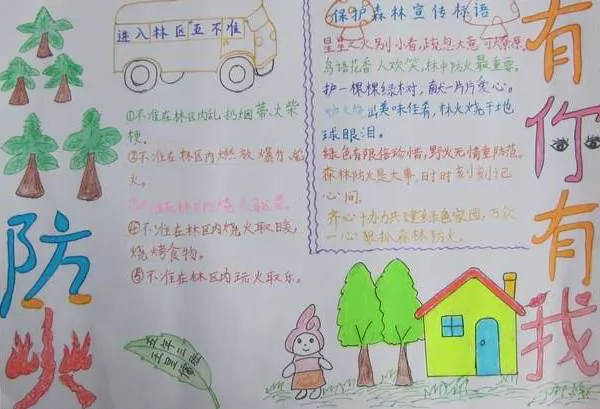 防火
有你有我
进入林区"五不准"
①不准在林区内乱扔烟蒂、火柴
梗。
②不准在林区内燃放爆竹、焰
火。
④不准在林区内烧火取暖,
烧烤食物。
⑤不准在林区内玩火取乐。
保护森林宣传标语
星星之火别小看,疏忽大意可燎原。
鸟语花香人欢笑,林中防火最重要。
护一棵棵绿树,献一片片爱心。
美味佳肴,林火烧干地
球眼泪。
绿色有限倍珍惜,野火无情重防范。
森林防火是大事,时时刻刻记
心间。
齐心协力共建绿色家园,万众
一心 森林防火。